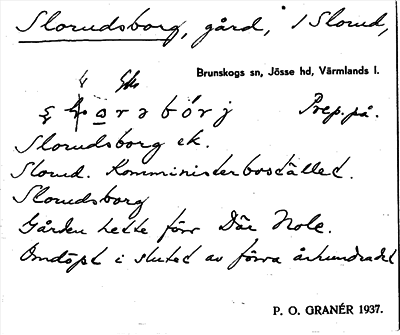 Slorudsborg, gård, i Slorud,
Brunskogs sn, Jösse hd, Värmlands l.
Prep. på.
Slorudsborg ek.
Slorud. Komministerbostället.
Slorudsborg
Gården hette förr Där Nole.
Omdöpt i slutet av förra århundradet
P. O. GRANÉR 1937.